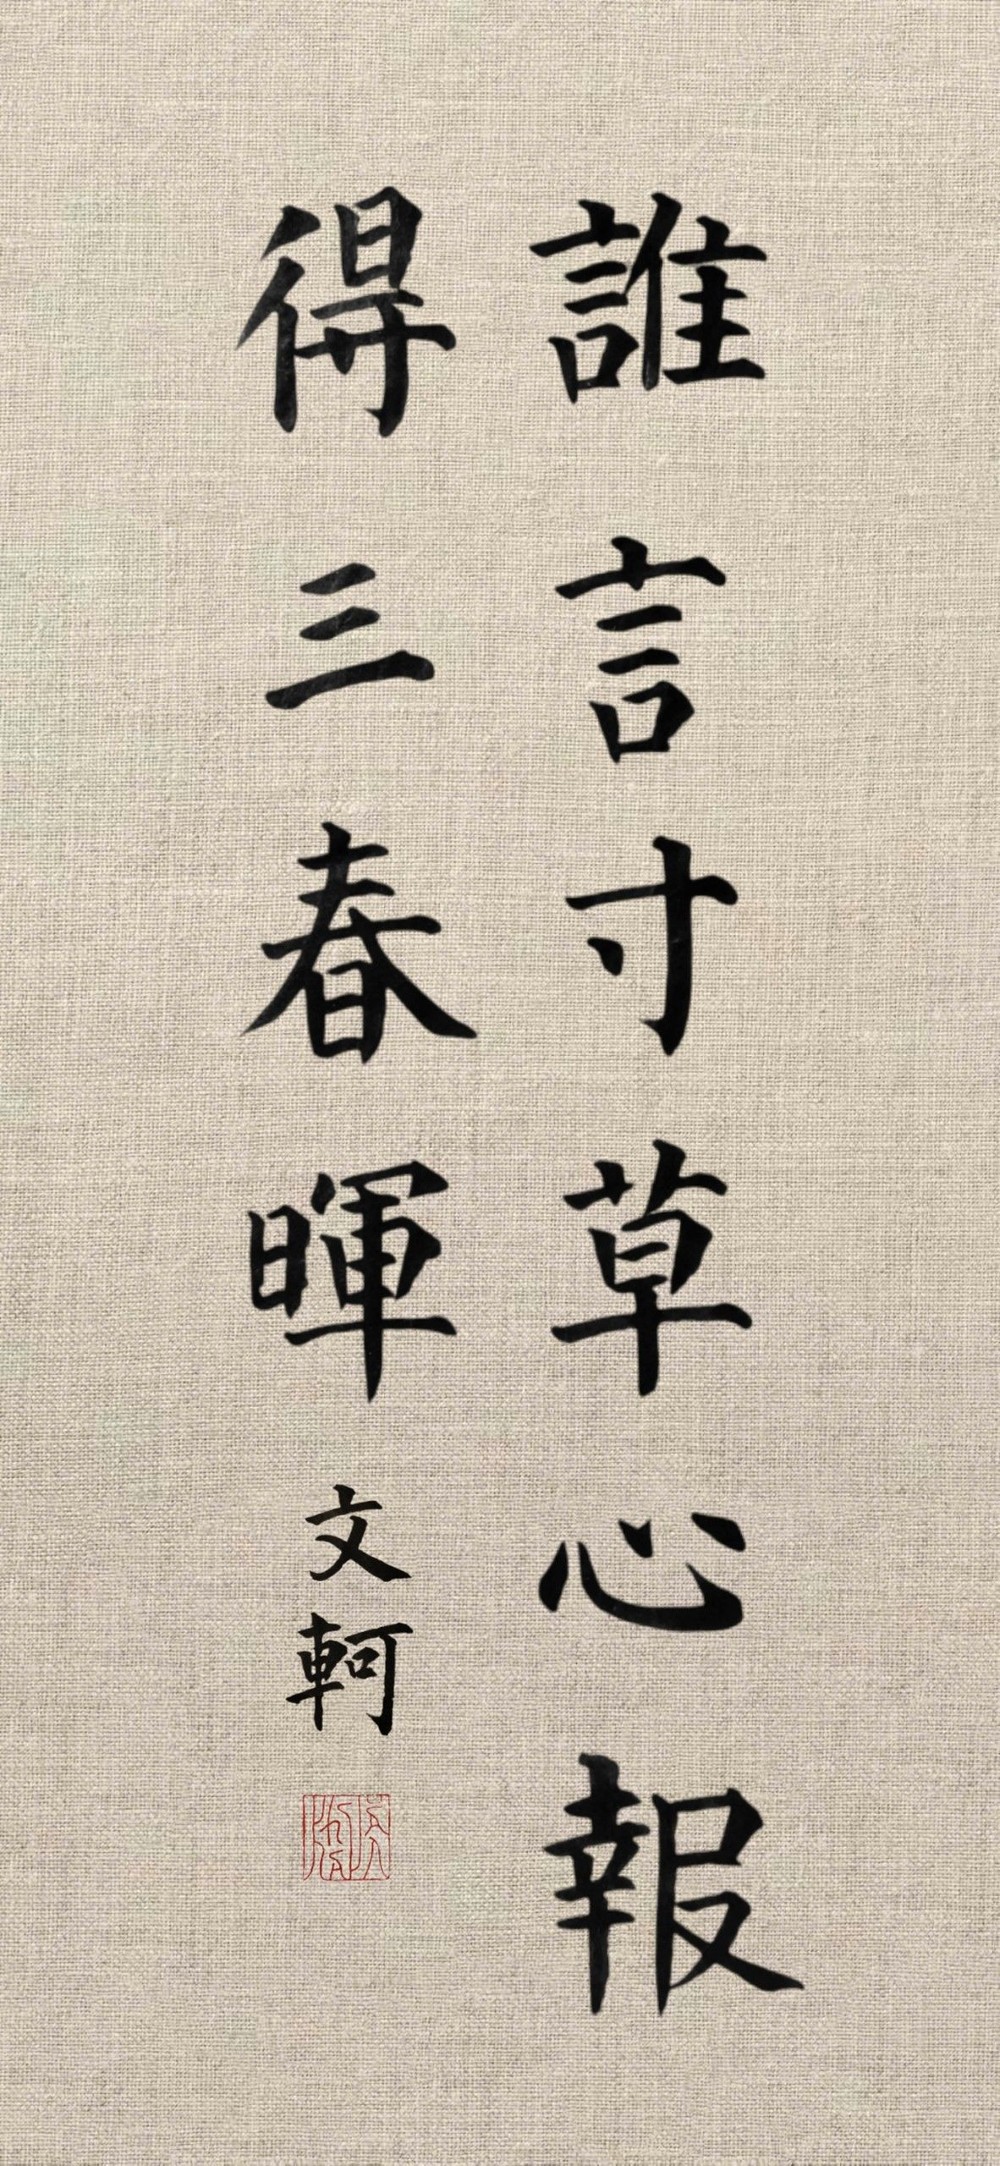 誰言寸草心報
得三春暉
文軻